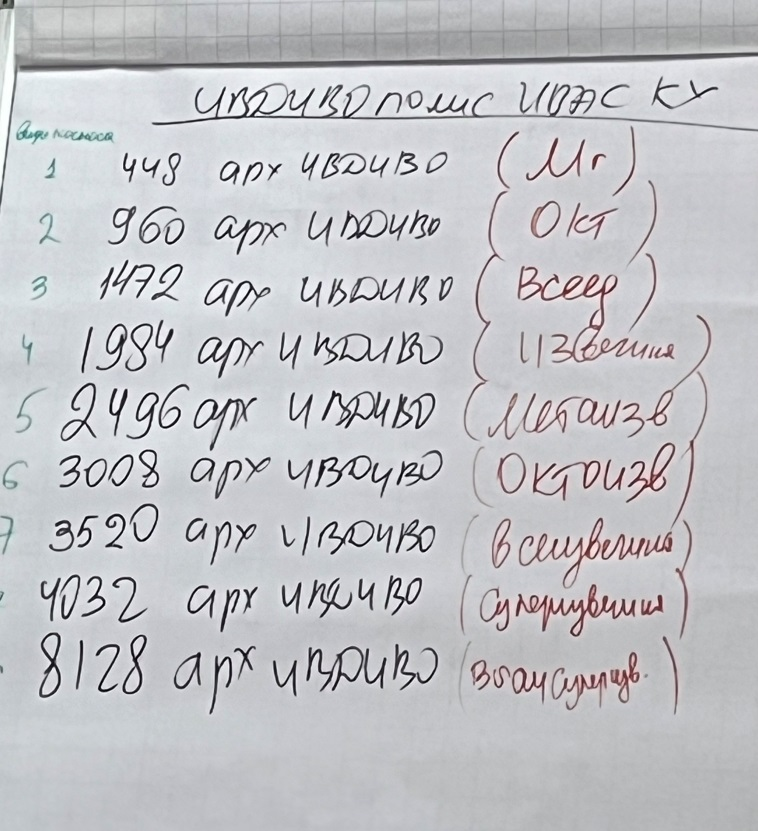 ИВДИВО полис ИВАС КХ
виды космоса
1 448 арх ИВДИВО (Мг)
2 960 арх ИВДИВО (Окт)
3 1472 арх ИВДИВО (Всеед)
4 1984 арх ИВДИВО (Извечина)
5 2496 арх ИВДИВО (Метаизв)
6 3008 арх ИВДИВО (Октоизв)
7 3520 арх ИВДИВО
4032 арх ИВДИВО
8128 арх ИВДИВО